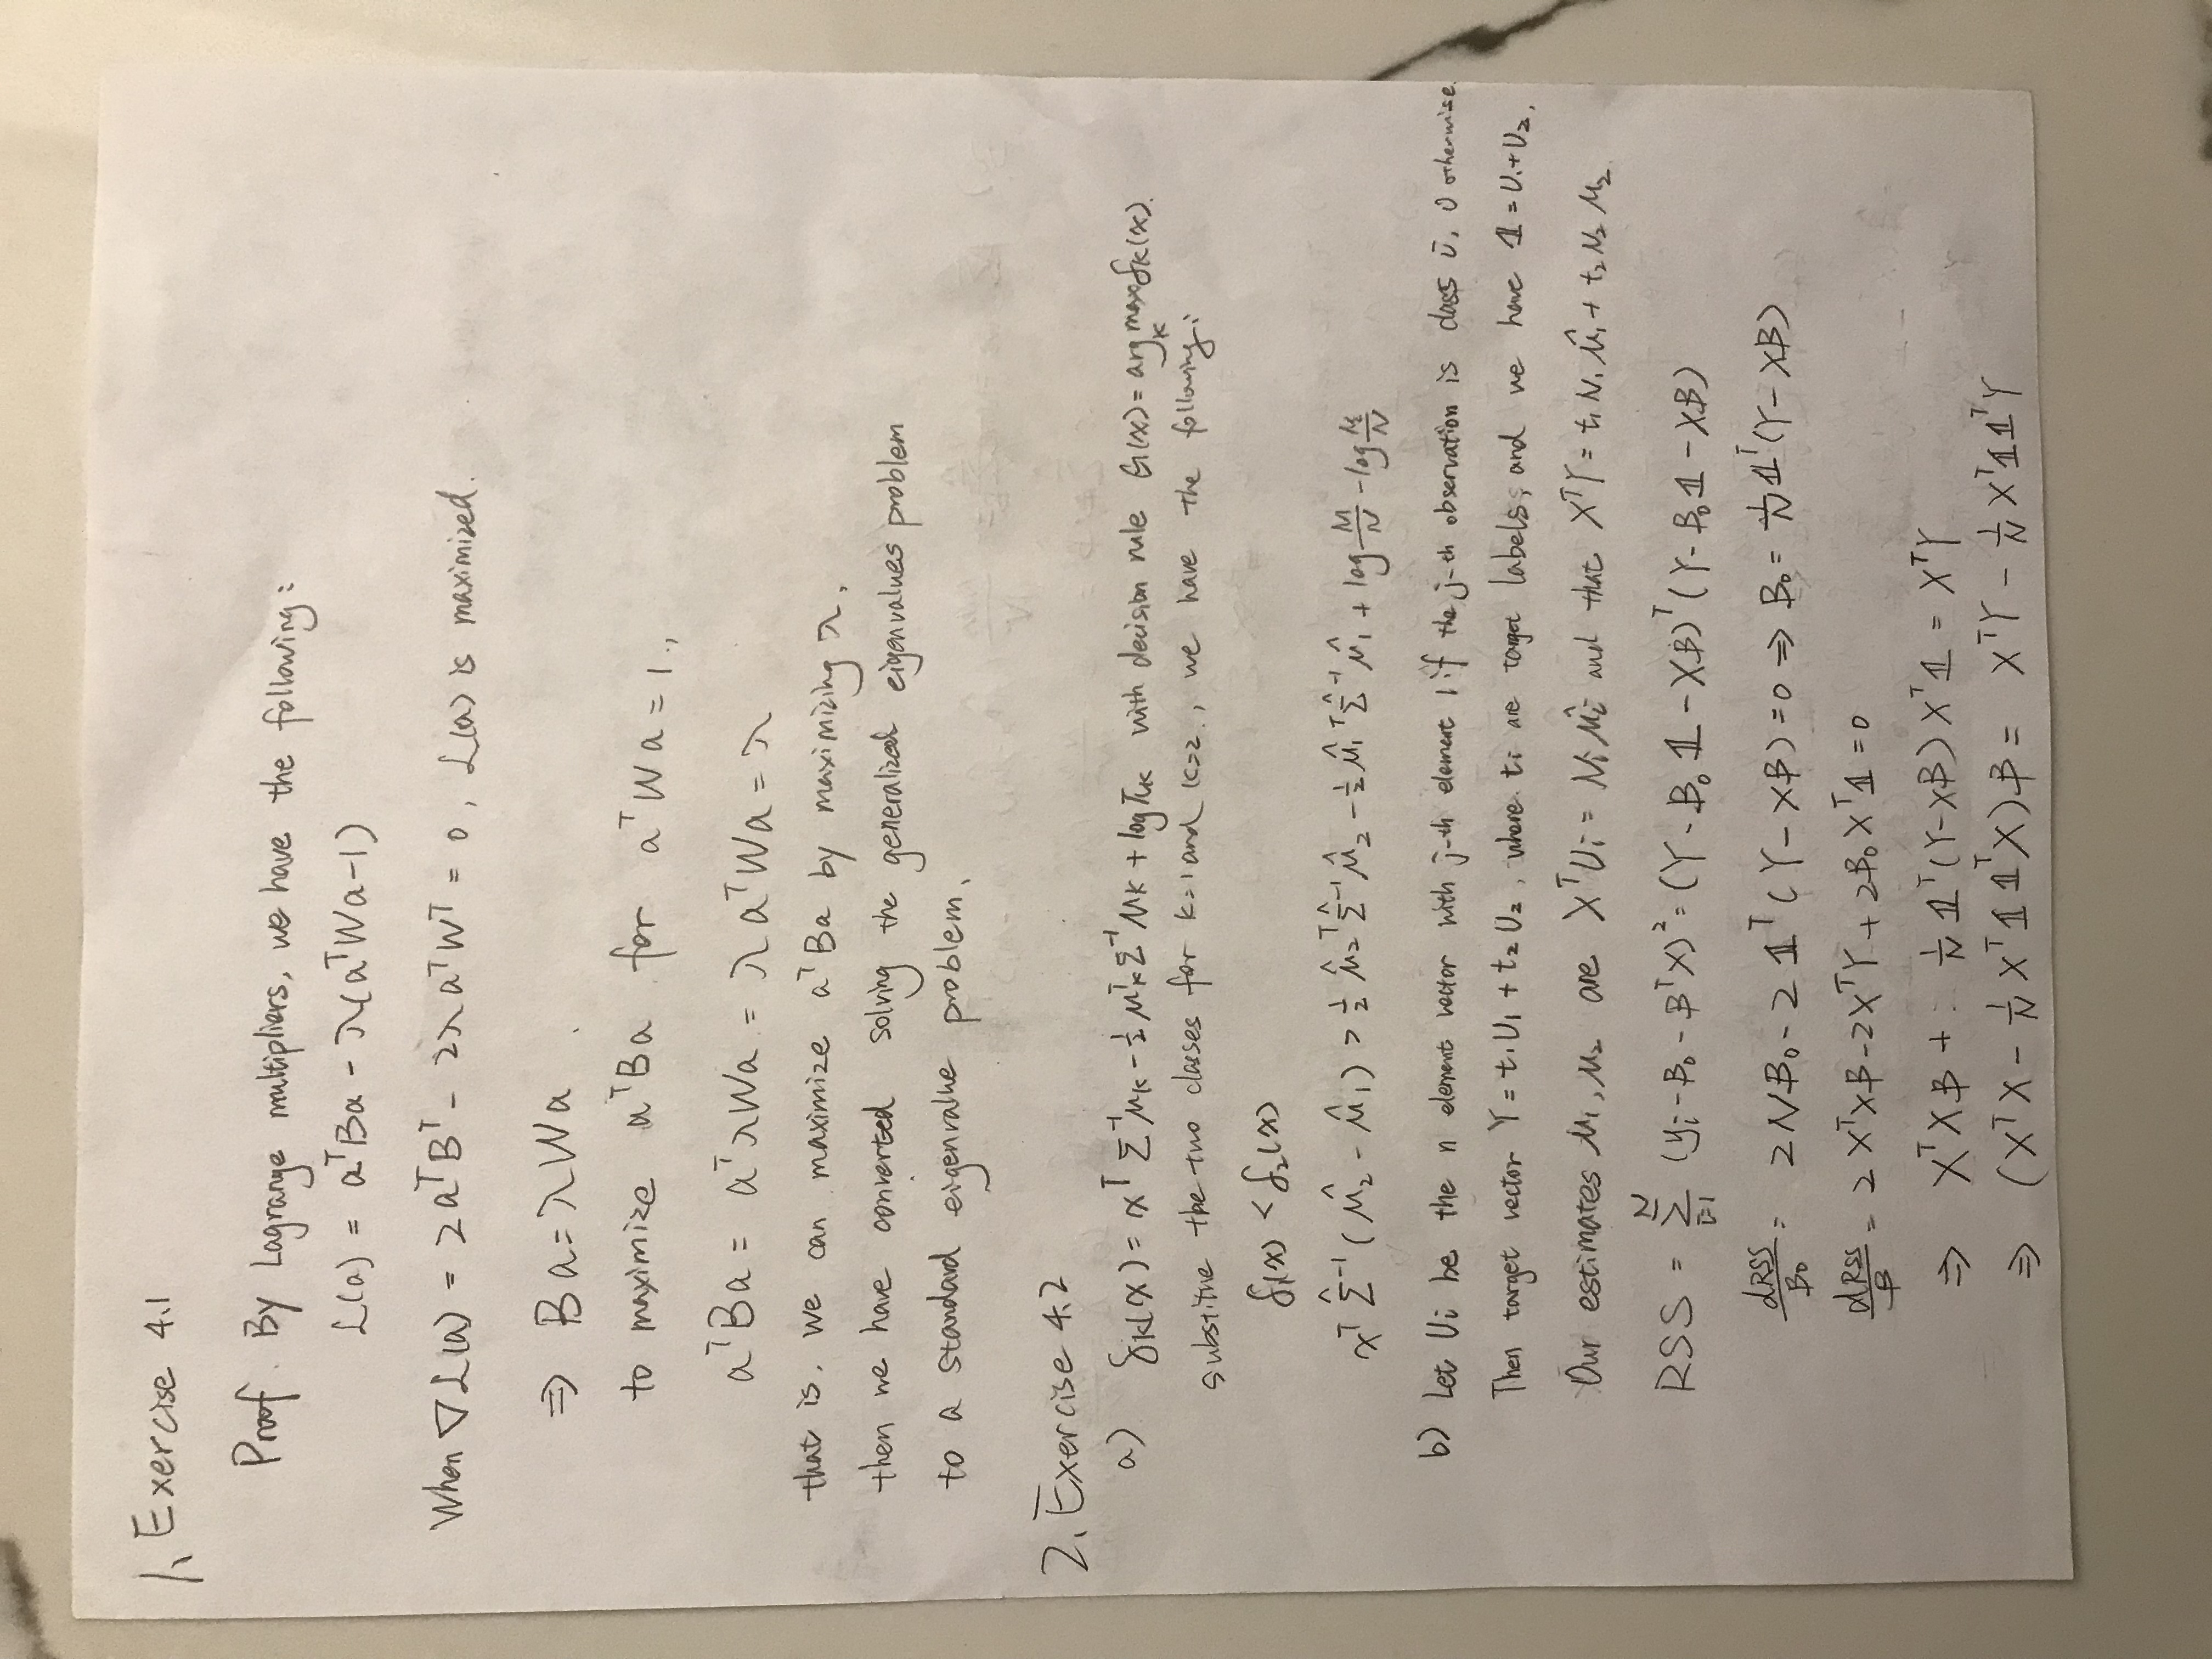 1、Exercise 4.1
Proof. By Lagrange multipliers, we have the following:
L(a) = aᵀBa - λ(aᵀWa-1)
When ∇L(a) = 2aᵀBᵀ - 2λaᵀWᵀ = 0, L(a) is maximized.
⇒ Ba = λWa
to maximize aᵀBa for aᵀWa = 1.,
aᵀBa = aᵀλWa = λaᵀWa = λ
that is, we can maximize aᵀBa by maximizing λ.
then we have converted solving the generalized eigenvalues problem
to a standard eigenvalue problem.
2、Exercise 4.2
a) δₖ(x) = xᵀΣ⁻¹μₖ - ½μₖᵀΣ⁻¹μₖ + logπₖ with decision rule G(x) = arg maxₖ δₖ(x).
substitue the two classes for k=1 and k=2., we have the following:
δ₁(x) < δ₂(x)
xᵀΣ̂⁻¹(μ̂₂ - μ̂₁) > ½μ̂₂ᵀΣ̂⁻¹μ̂₂ - ½μ̂₁ᵀΣ̂⁻¹μ̂₁ + log N₁/N - log N₂/N
b) Let Ui be the n element vector with j-th element 1 if the j-th observation is class i, 0 otherwise.
Then target vector Y = t₁U₁ + t₂U₂, where ti are target labels, and we have 𝟙 = U₁+U₂.
Our estimates μ₁, μ₂ are XᵀUi = Niμ̂i and that XᵀY = t₁N₁μ̂₁ + t₂N₂μ₂
RSS = Σᵢ₌₁ᴺ (yi - β₀ - βᵀX)² = (Y - β₀𝟙 - Xβ)ᵀ(Y - β₀𝟙 - Xβ)
dRSS/β₀ = 2Nβ₀ - 2𝟙ᵀ(Y - Xβ) = 0 ⇒ β₀ = 1/N 𝟙ᵀ(Y - Xβ)
dRSS/β = 2XᵀXβ - 2XᵀY + 2β₀Xᵀ𝟙 = 0
⇒ XᵀXβ + 1/N 𝟙ᵀ(Y-Xβ)Xᵀ𝟙 = XᵀY
⇒ (XᵀX - 1/N Xᵀ𝟙𝟙ᵀX)β = XᵀY - 1/N Xᵀ𝟙𝟙ᵀY